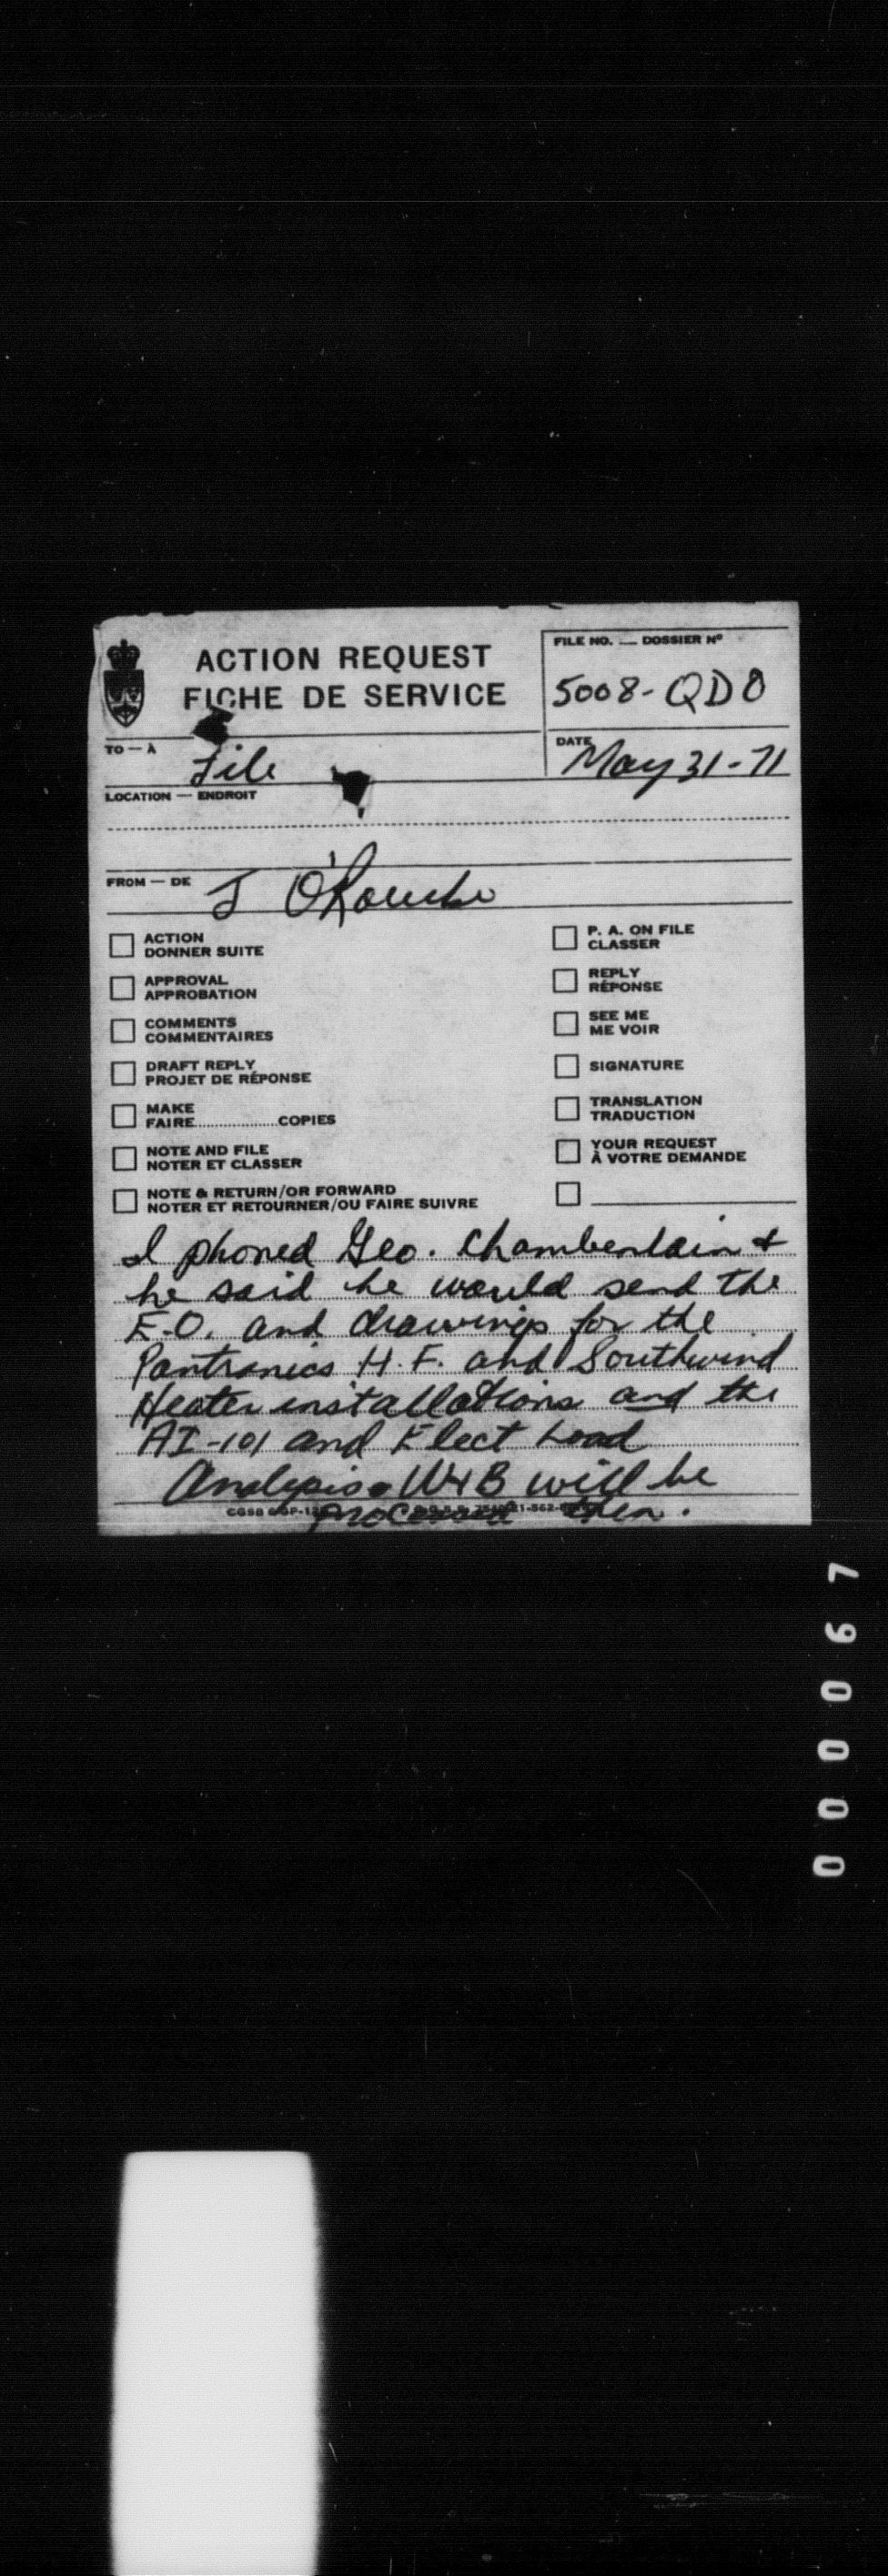 ACTION REQUEST
FICHE DE SERVICE
FILE NO. — DOSSIER Nº
5008-QD0
TO — À
File
DATE
May 31-71
LOCATION — ENDROIT
FROM — DE
J O'Rourke
ACTION
DONNER SUITE
APPROVAL
APPROBATION
COMMENTS
COMMENTAIRES
DRAFT REPLY
PROJET DE RÉPONSE
MAKE
FAIRE..................COPIES
NOTE AND FILE
NOTER ET CLASSER
NOTE & RETURN/OR FORWARD
NOTER ET RETOURNER/OU FAIRE SUIVRE
P. A. ON FILE
CLASSER
REPLY
RÉPONSE
SEE ME
ME VOIR
SIGNATURE
TRANSLATION
TRADUCTION
YOUR REQUEST
À VOTRE DEMANDE
I phoned Geo. Chamberlain &
he said he would send the
E.O. and drawings for the
Pantronics H.F. and Southwind
Heater installations and the
AI-101 and Elect Load
Analysis. W&B will be
then.
000067